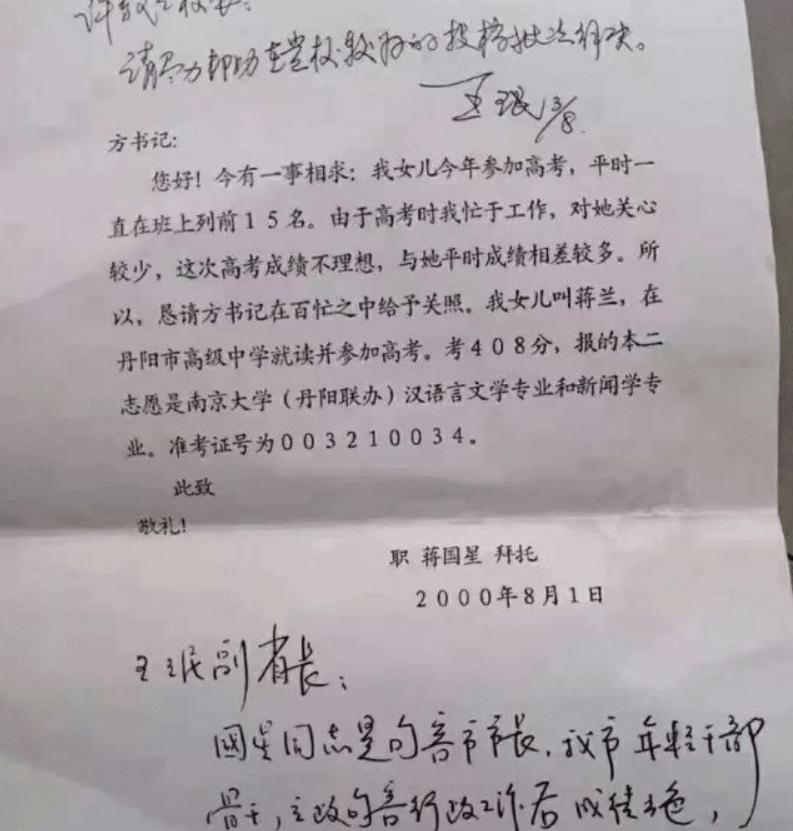 请尽力帮助在贵校较好的投档批次解决。
王珉 3/8
方书记:
您好!今有一事相求:我女儿今年参加高考,平时一
直在班上列前15名。由于高考时我忙于工作,对她关心
较少,这次高考成绩不理想,与她平时成绩相差较多。所
以,恳请方书记在百忙之中给予关照。我女儿叫蒋兰,在
丹阳市高级中学就读并参加高考。考408分,报的本二
志愿是南京大学(丹阳联办)汉语言文学专业和新闻学专
业。准考证号为003210034。
此致
敬礼!
职 蒋国星 拜托
2000年8月1日
王珉副省长:
國星同志是句容市市长,我市年轻干部
骨干,主政句容行政工作后成绩出色,